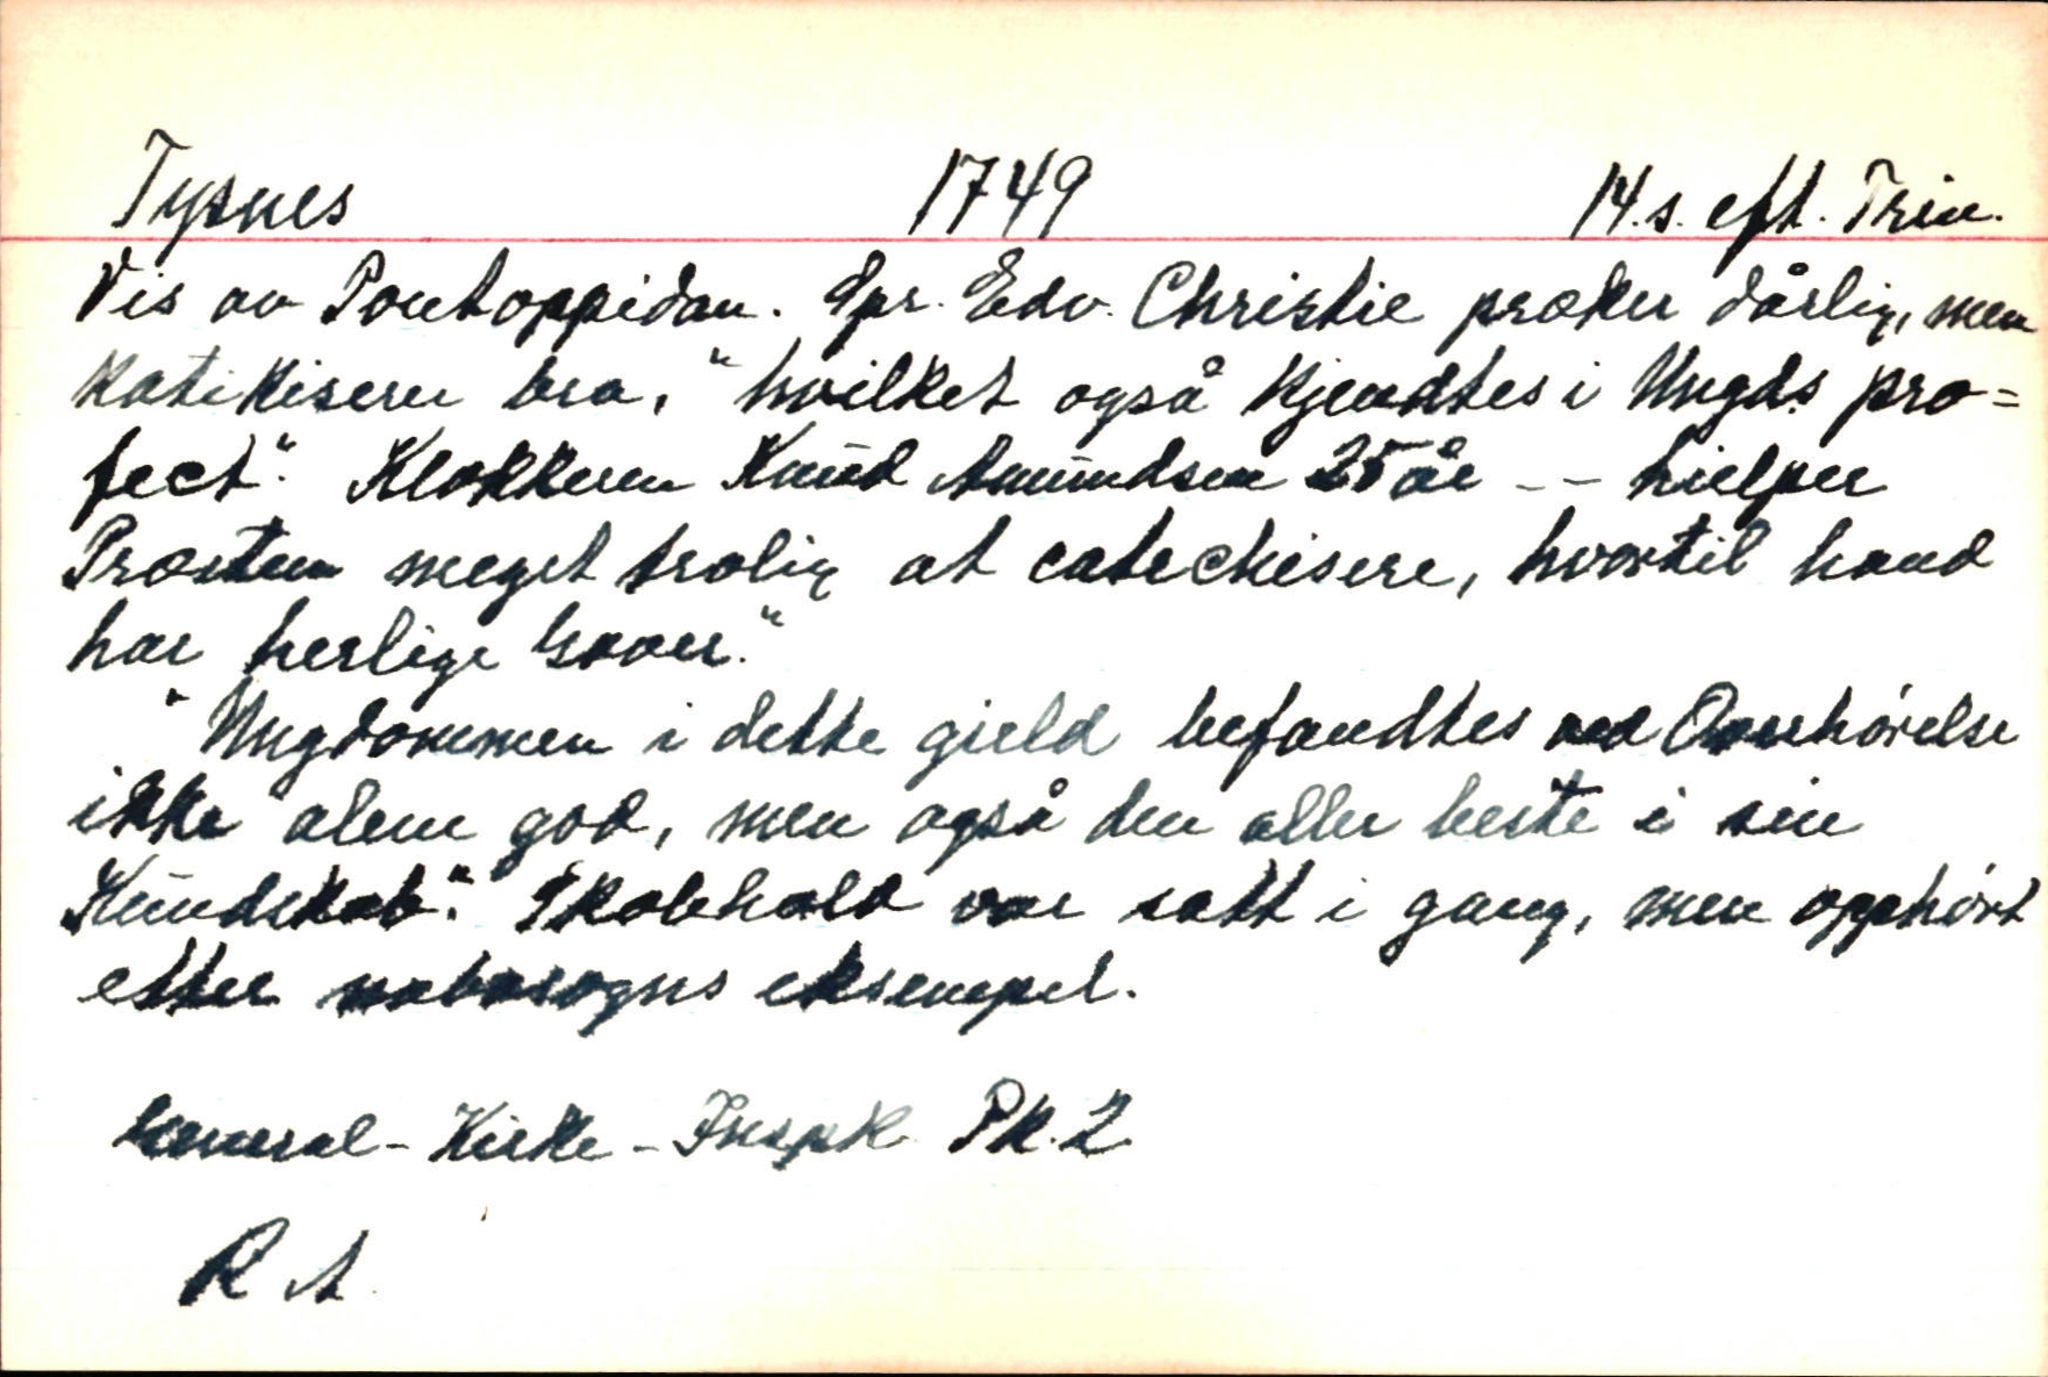 Tysnes 1749 14. s. eft. Trin.
Vis av Pontoppidan. Spr. Edv. Christie præker dårlig, men
katikiserer bra, "hvilket også kjendtes i Ungds pro=
fect". Klokkeren Knud Amundsen 25 år -- hielper
Præsten meget trolig at catechisere, hvortil hand
har herlige Gaver."
"Ungdommen i dette gield befandtes ved Overhørelse
ikke alene god, men også den aller beste i sin
Kundskab". Skolehold var satt i gang, men opphørt
etter nabosogns eksempel.
General-Kirke-Inspk Pk. 2
R A.